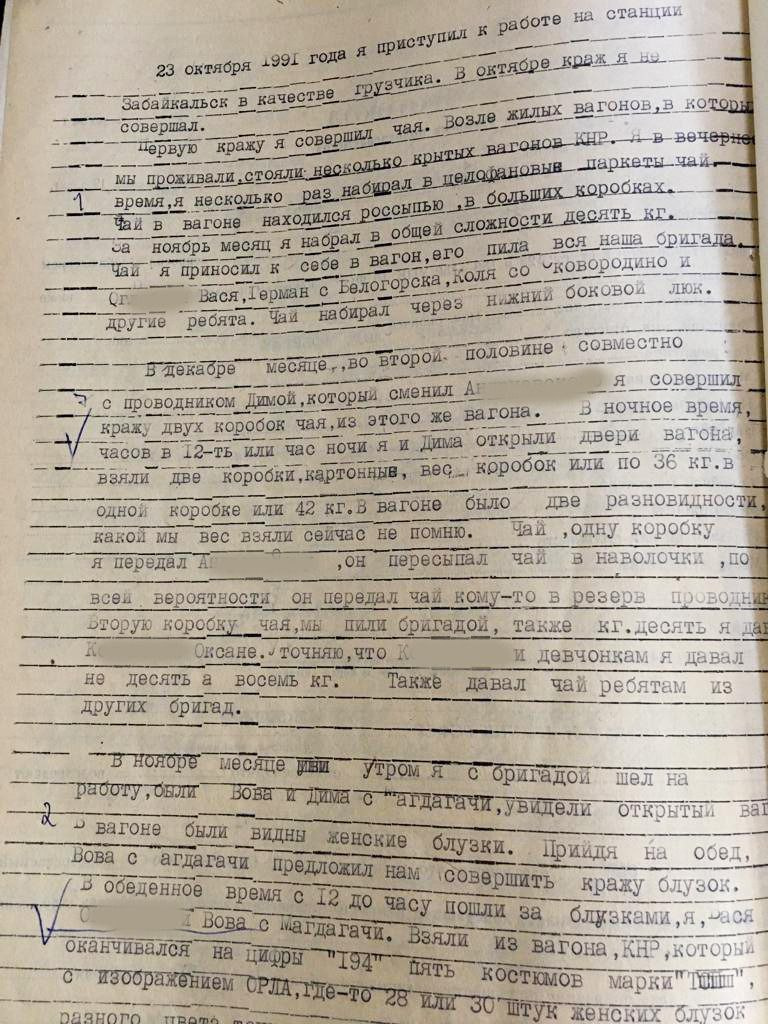 23 октября 1991 года я приступил к работе на станции
Забайкальск в качестве грузчика. В октябре краж я не
совершал.
Первую кражу я совершил чая. Возле жилых вагонов,в которы
мы проживали,стояли несколько крытых вагонов КНР. Я в вечернее
1 время,я несколько раз набирал в целофановые паркеты чай.
Чай в вагоне находился россыпью ,в больших коробках.
За ноябрь месяц я набрал в общей сложности десять кг.
Чай я приносил к себе в вагон,его пила вся наша бригада.
Вася,Герман с Белогорска,Коля со Сковородино и
другие ребята. Чай набирал через нижний боковой люк.
В декабре месяце,,во второй половине совместно
с проводником Димой,который сменил Ан я совершил
кражу двух коробок чая,из этого же вагона. В ночное время,
часов в 12-ть или час ночи я и Дима открыли двери вагона,
взяли две коробки,картонные, вес коробок или по 36 кг.в
одной коробке или 42 кг.В вагоне было две разновидности,
какой мы вес взяли сейчас не помню. Чай ,одну коробку
я передал Ан ,он пересыпал чай в наволочки ,по
всей вероятности он передал чай кому-то в резерв проводник
Вторую коробку чая,мы пили бригадой, также кг.десять я дав
К Оксане. Уточняю,что К и девчонкам я давал
не десять а восемь кг. Также давал чай ребятам из
других бригад.
В ноябре месяце утром я с бригадой шел на
работу,были Вова и Дима с Магдагачи,увидели открытый ваг
2 В вагоне были видны женские блузки. Прийдя на обед,
Вова с агдагачи предложил нам совершить кражу блузок.
В обеденное время с 12 до часу пошли за блузками,я,Вася
О и Вова с Магдагачи. Взяли из вагона,КНР,который
оканчивался на цифры "194" пять костюмов марки
с изображением ОРЛА,где-то 28 или 30 штук женских блузок
разного цвета